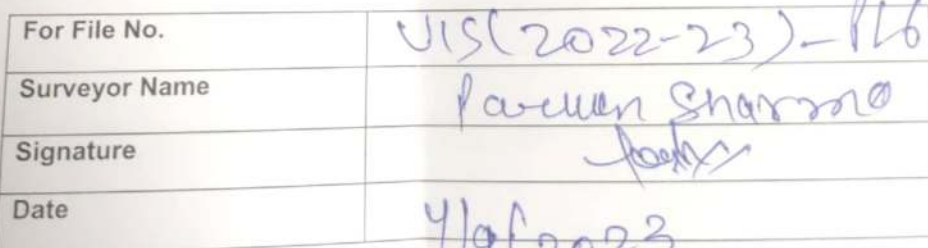 For File No. VIS(2022-23)-PL6
Surveyor Name Parwen Sharma
Signature
Date 4/01/2023